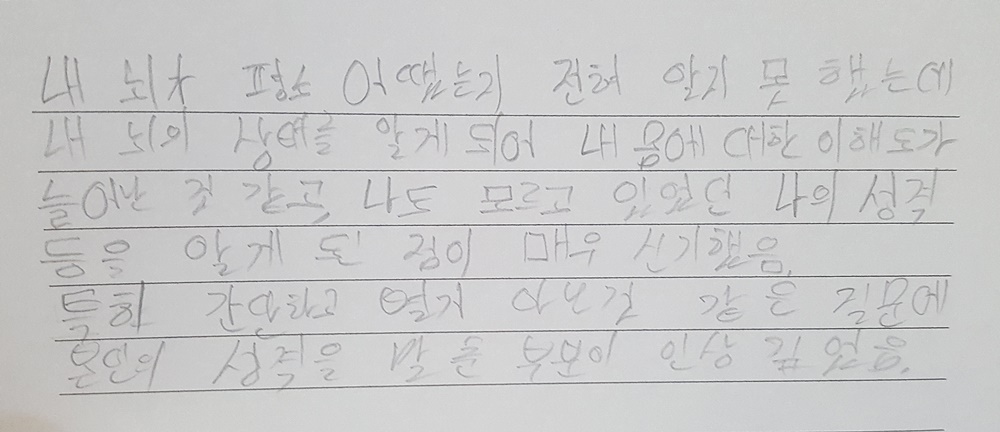 내 뇌가 평소 어땠는지 전혀 알지 못 했는데
내 뇌의 상태를 알게 되어 내 몸에 대한 이해도가
늘어난 것 같고, 나도 모르고 있었던 나의 성적
등을 알게 된 점이 매우 신기했음.
특히 간단하고 별거 아닌것 같은 질문에
본인의 성적을 말 준 부분이 인상 깊었음.